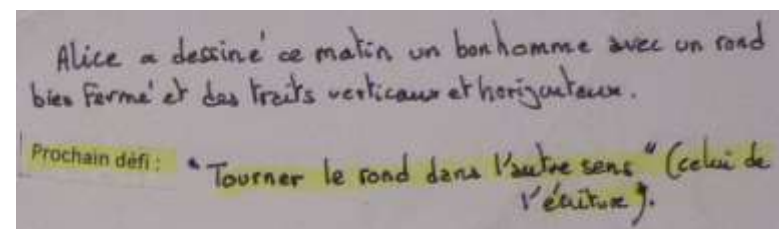 Alice a dessiné ce matin un bonhomme avec un rond
bien fermé et des traits verticaux et horizontaux.
Prochain défi : "Tourner le rond dans l'autre sens" (celui de
l'écriture).